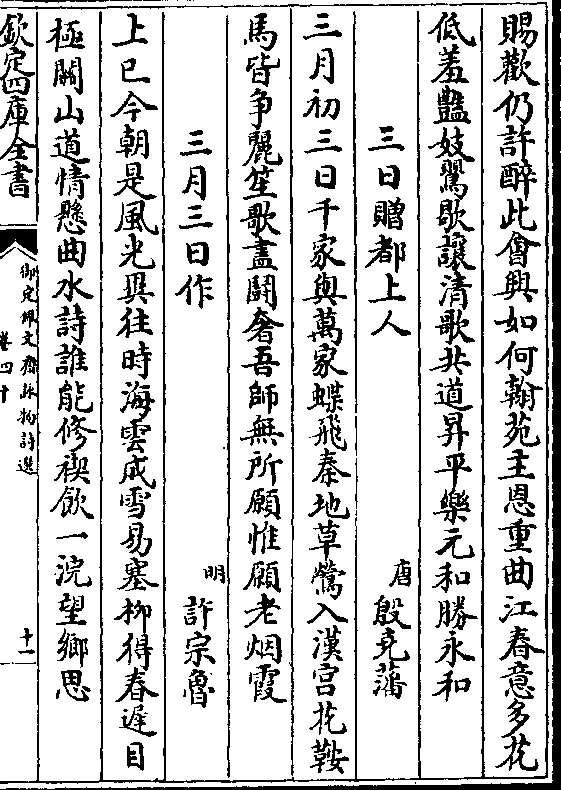 賜歡仍許醉此會興如何翰苑主恩重曲江春意多花
低羞艷妓鶯歇讓清歌共道昇平樂元和勝永和
三日贈都上人
唐 殷堯藩
三月初三日千家與萬家蝶飛秦地草鶯入漢宮花鞍
馬皆争麗笙歌盡鬪奢吾師無所願惟願老烟霞
三月三日作
明 許宗魯
上巳今朝是風光異往時海雲成雪易塞柳得春遲目
極關山道情懸曲水詩誰能修禊飲一浣望鄉思
欽定四庫全書
御定佩文齋詠物詩選
卷四十
十一